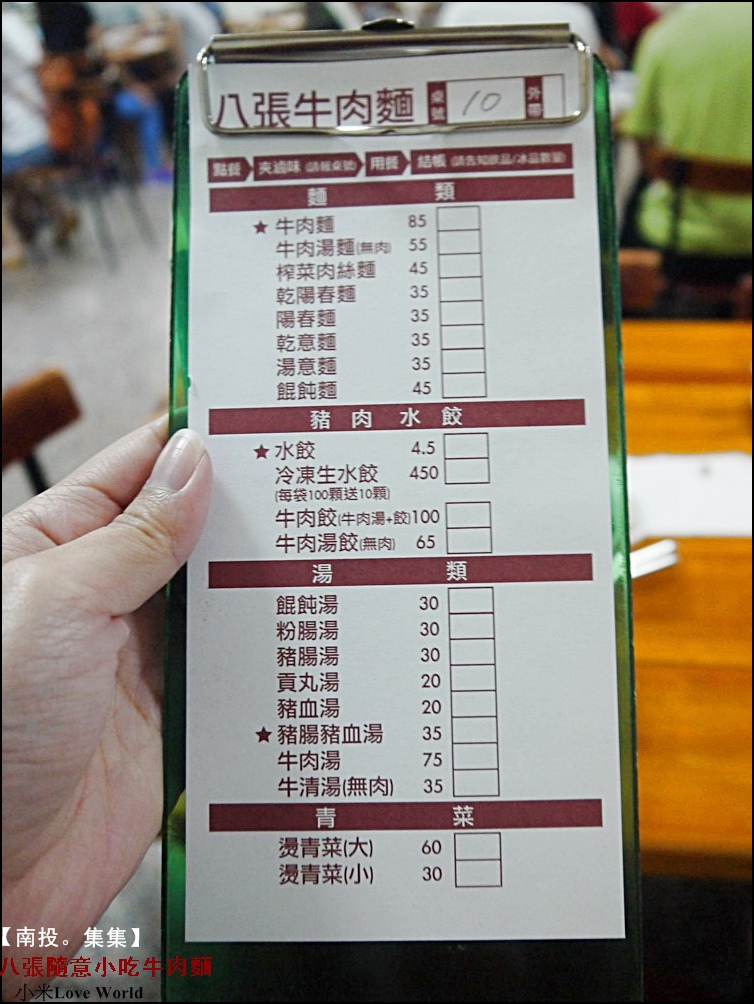 八張牛肉麵 桌號 10 外帶
點餐 夾滷味 (請報桌號) 用餐 結帳 (請告知飲品/冰品數量)
麵類
★ 牛肉麵 85
牛肉湯麵(無肉) 55
榨菜肉絲麵 45
乾陽春麵 35
陽春麵 35
乾意麵 35
湯意麵 35
餛飩麵 45
豬肉水餃
★ 水餃 4.5
冷凍生水餃 450
(每袋100顆送10顆)
牛肉餃(牛肉湯+餃) 100
牛肉湯餃(無肉) 65
湯類
餛飩湯 30
粉腸湯 30
豬腸湯 30
貢丸湯 20
豬血湯 20
★ 豬腸豬血湯 35
牛肉湯 75
牛清湯(無肉) 35
青菜
燙青菜(大) 60
燙青菜(小) 30
【南投。集集】
八張隨意小吃牛肉麵
小米Love World